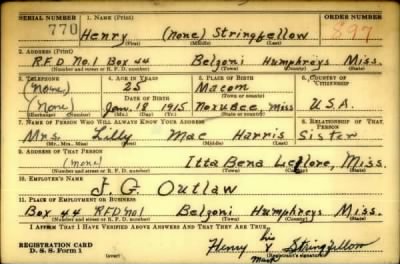 SERIAL NUMBER 1. NAME (Print) ORDER NUMBER
770 Henry (None) Stringfellow 897
(First) (Middle) (Last)
2. ADDRESS (Print)
R.F.D No.1 Box 44 Belzoni Humphreys Miss.
(Number and street or R. F. D. number) (Town) (County) (State)
3. TELEPHONE 4. AGE IN YEARS 5. PLACE OF BIRTH 6. COUNTRY OF CITIZENSHIP
(None) 25 Macom
DATE OF BIRTH (Town or county)
(None) Jan. 18 1915 Noxubee, Miss U.S.A.
(Exchange) (Number) (Mo.) (Day) (Yr.) (State or country)
7. NAME OF PERSON WHO WILL ALWAYS KNOW YOUR ADDRESS 8. RELATIONSHIP OF THAT PERSON
Mrs. Lilly Mae Harris Sister
(Mr., Mrs., Miss) (First) (Middle) (Last)
9. ADDRESS OF THAT PERSON
(None) Itta Bena Leflore, Miss.
(Number and street or R. F. D. number) (Town) (County) (State)
10. EMPLOYER'S NAME
J. G. Outlaw
11. PLACE OF EMPLOYMENT OR BUSINESS
Box 44 RFD No1 Belzoni Humphreys Miss
(Number and street or R. F. D. number) (Town) (County) (State)
I AFFIRM THAT I HAVE VERIFIED ABOVE ANSWERS AND THAT THEY ARE TRUE.
REGISTRATION CARD
D. S. S. Form 1
Henry his X mark Stringfellow
(Registrant's signature)